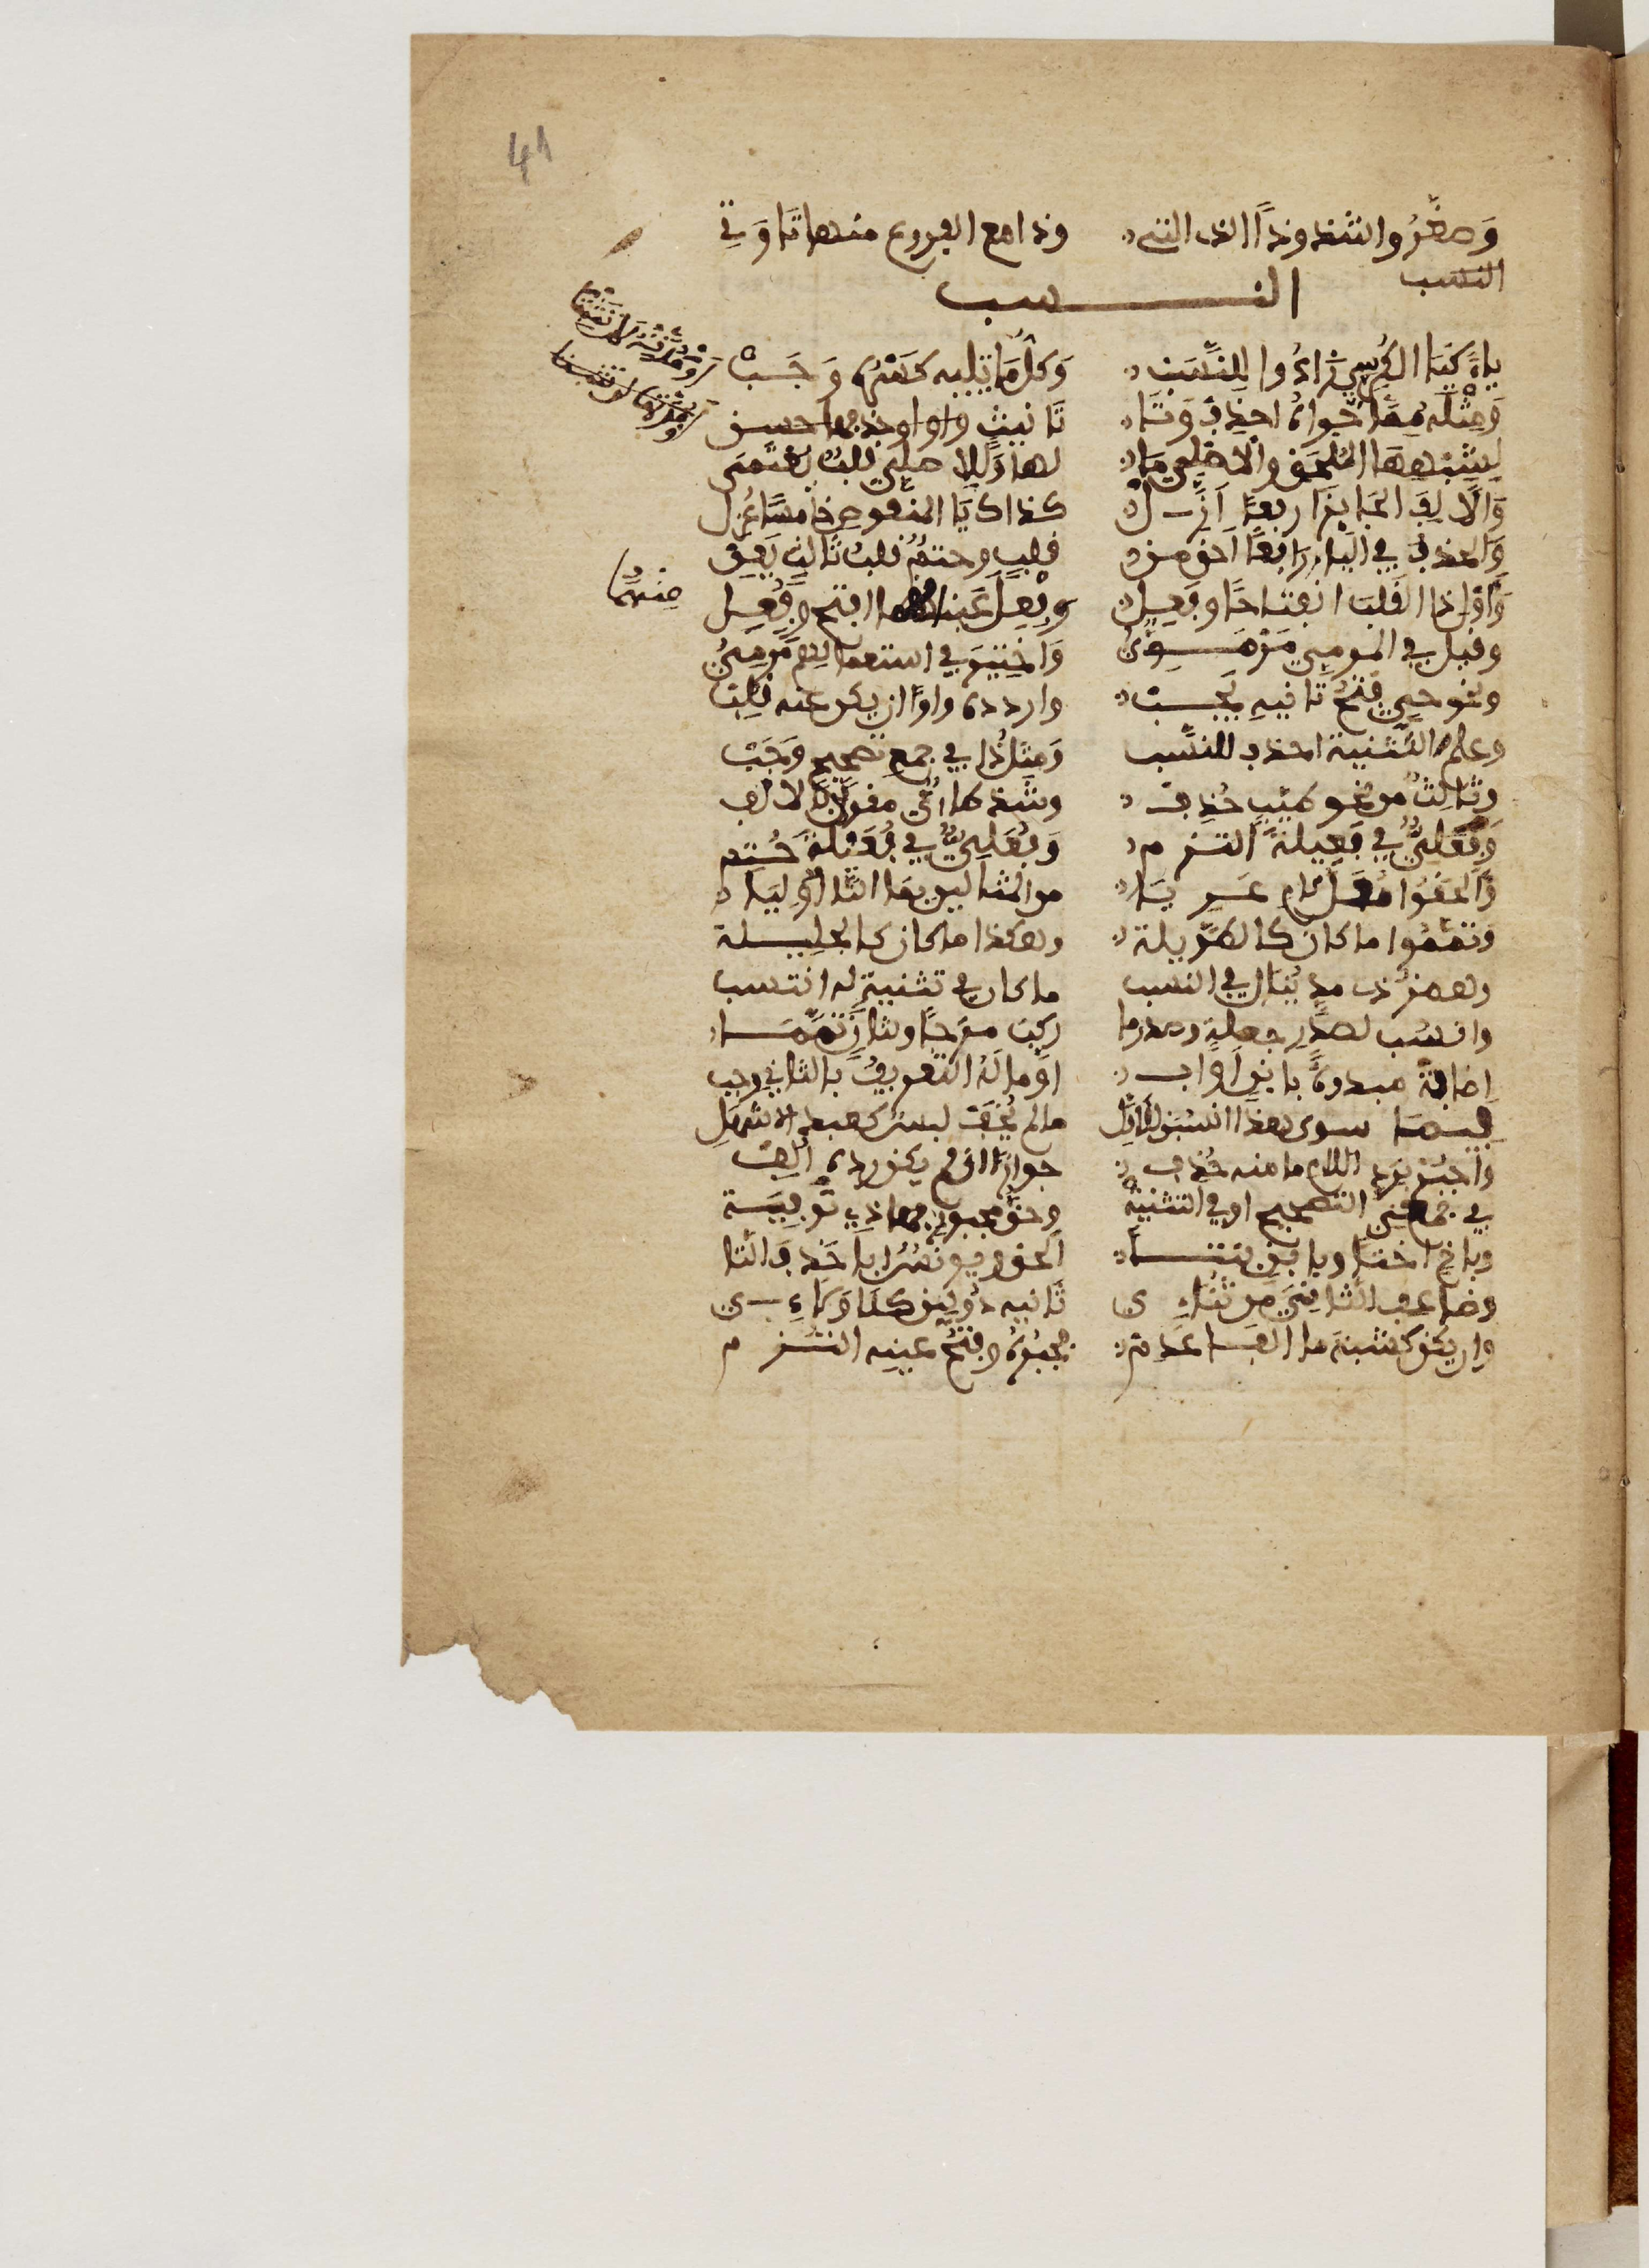 41
وَصَغَّرُوا شُذُوذًا الذي التي وذا مع الفروع منها تَا وَتِي
النسب
النسب
ياءً كَيَا الكُرْسِيِّ زَادُوا لِلنَّسَبْ وَكلُّ مَا تَلِيهِ كَسْرُهُ وَجَبْ
وَمِثْلَهُ مِمَّا حَوَاهُ احْذِفْ وَتَا تَانيث
لِشِبْهِهَا المُلْحَقِ وَالأَصْلِيِّ مَا لها وَلِلاَصْلِيِّ قلبٌ يُعْتَمَى
وَالاَلِفَ الجَايزَ اربعًا أَزِلْ كذاك يَا المنقوصِ خَامسًا عُزِل
وَالحذفُ في اليَاءِ رَابعًا احَقُّ مِن قلبٍ وحتمٌ قلبُ ثَالثٍ يَعِنّ
وَأَوْلِ ذا القَلبَ انفتاحًا وفَعِل وفِعِلٌ عَينَهما افتح وفُعِل
منهما
وقيل في المرميِّ مَرْمَوِيُّ وَاخْتِيرَ في استعمالهم مَرْمِيُّ
ونحو حيٍّ فتحُ ثانيهِ يَجِبْ واردده واوًا ان يكن عنه قُلِبْ
وعلم التَّثنية احذف للنَّسَب وَمِثلُ ذا في جمع تصحيحٍ وَجَبْ
وثالثٌ من نحو طَيِّبٍ حُذِف وشذ طاءيٌّ مقولاً بالالف
وَفَعَلِيٌّ في فَعِيلةَ التزم وَفُعَلِيٌّ في فُعَيْلَةٍ حُتم
وَأَلحَقُوا مُعَلَّ لامٍ عَرِيَا من المثالين بما التَّا أُولِيَا
وتمَّمُوا ما كان كالطَّويلة وهكذا ما كان كالجليلة
وهمزُ ذي مد يُنال في النسب ما كان في تثنيةٍ له انتسب
وانسب لصدر جملة وصدر ما ركب مزجًا ولثانٍ تَمَّمَا
اضافةً مبدوءةً بابنٍ أَوَ اب اوْ مَا لَهُ التعريفُ بالثاني وجب
فيما سوى هذا انسُبَنْ للاوَّل مالم يُخَفْ لبسٌ كعبد الاشهَلِ
واجبُرْ بِرَدِّ اللام ما منه حُذِف جوازًا ان لم يكن ردُّه أُلِف
في جمعَيِ التصحيح او في التثنية وحقُّ مجبورٍ بهاذي توْفِيَة
وباخٍ اختًا وبابنٍ بنتا ألحق ويونسٌ أبى حَذفَ التَّا
وضاعِفِ الثانيَ من ثُنَاءِي ثانيه ذُو لينٍ كلَا وَلَاءِي
وان يكن كشِيَةٍ ما الفَا عَدِم فجَبْرُهُ وفتحُ عينِه التزم